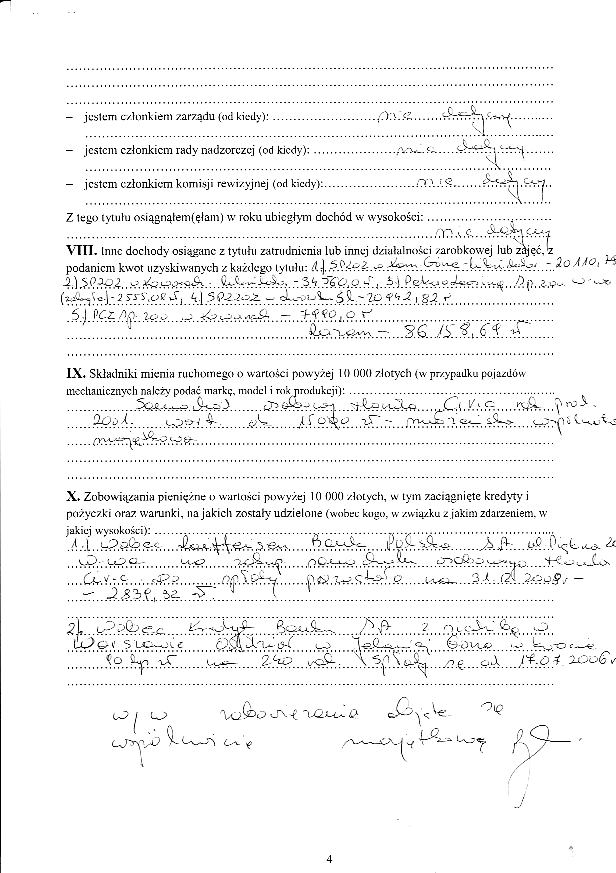 – jestem członkiem zarządu (od kiedy): nie dotyczy
– jestem członkiem rady nadzorczej (od kiedy): nie dotyczy
– jestem członkiem komisji rewizyjnej (od kiedy): nie dotyczy
Z tego tytułu osiągnąłem(ęłam) w roku ubiegłym dochód w wysokości:
nie dotyczy
VIII. Inne dochody osiągane z tytułu zatrudnienia lub innej działalności zarobkowej lub zajęć, z
podaniem kwot uzyskiwanych z każdego tytułu: 1) SPZOZ w Kam. Górze – 20110,
2) SPZOZ w Kowarach – 34760,0 zł, 3) Sp. z o.o.
– 2555,0 zł, 4) SPZZOZ – 20942,82 zł
5) PCZ Sp. zoo w Kowarach – 7990,0 zł
Razem – 86158,69 zł
IX. Składniki mienia ruchomego o wartości powyżej 10 000 złotych (w przypadku pojazdów
mechanicznych należy podać markę, model i rok produkcji):
Samochód osobowy Honda Civic rok prod.
2001. wart. ok 15000 zł – małżeńska wspólność
majątkowa
X. Zobowiązania pieniężne o wartości powyżej 10 000 złotych, w tym zaciągnięte kredyty i
pożyczki oraz warunki, na jakich zostały udzielone (wobec kogo, w związku z jakim zdarzeniem, w
jakiej wysokości):
1.) Wobec Raiffeisen Bank Polska SA ul. Piękna 20
W-wa na zakup samochodu osobowego Honda
Civic do spłaty pozostało na 31.12.2008 –
– 2839,32 zł
2) Wobec Kredyt Bank SA z siedzibą w
Warszawie Oddział w Jelenia Góra w kwocie
90 tys zł na 240 rat. Spłaty są od 17.07.2006 r
w/w zobowiązania objęte są
wspólnością majątkową
4